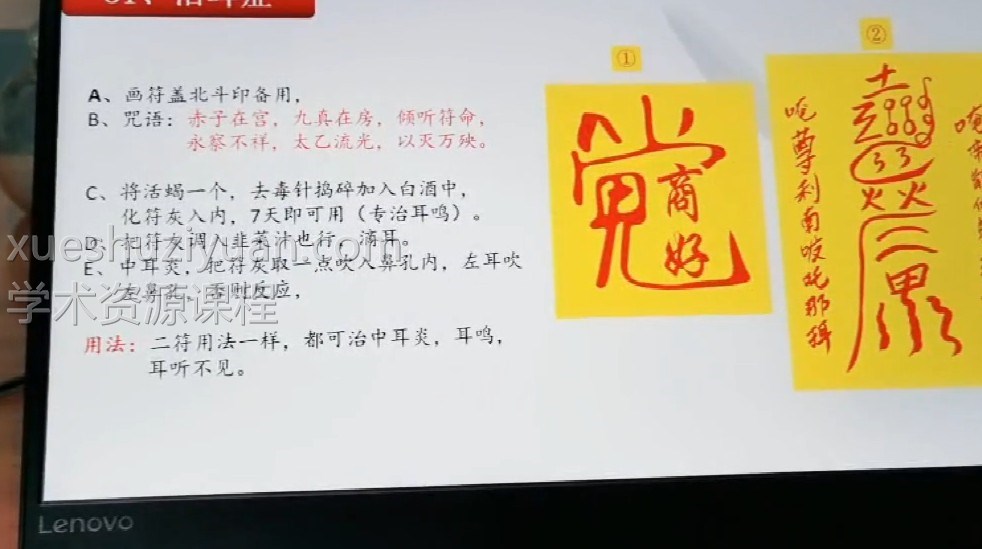 A、画符盖北斗印备用，
B、咒语：赤子在宫，九真在房，倾听符命，
永察不祥，太乙流光，以灭万殃。
C、将活蝎一个，去毒针捣碎加入白酒中，
化符灰入内，7天即可用（专治耳鸣）。
D、把符灰调入韭菜汁也行，滴耳。
E、中耳炎，把符灰取一点吹入鼻孔内，左耳吹
左鼻孔，否则反应，
用法：二符用法一样，都可治中耳炎，耳鸣，
耳听不见。
①
商
好
②
xueshuziyuan.com
学术资源课程
Lenovo